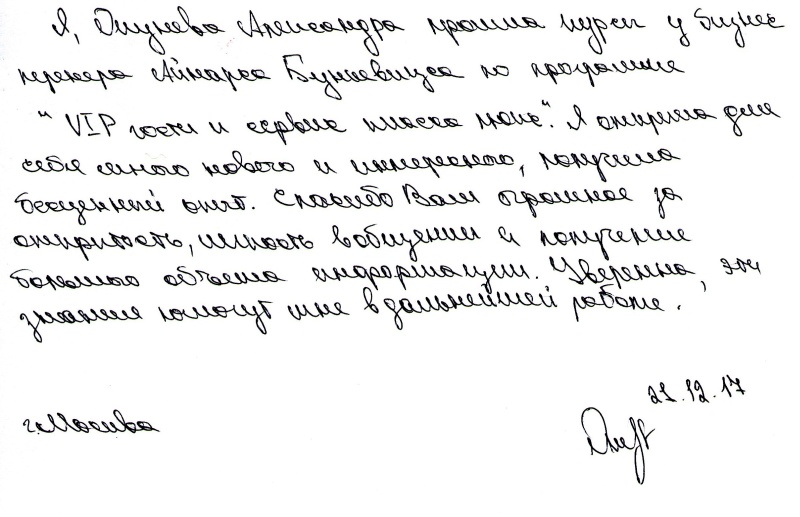 Я, Окунева Александра прошла курсы у бизнес
тренера Айнарса Бункевицса по программе
"VIP гости и сервис класса люкс". Я открыла для
себя много нового и интересного, получила
бесценный опыт. Спасибо Вам огромное за
открытость, лёгкость в общении и получение
большого объема информации. Уверенна, эти
знания помогут мне в дальнейшей работе.
21.12.17
г.Москва